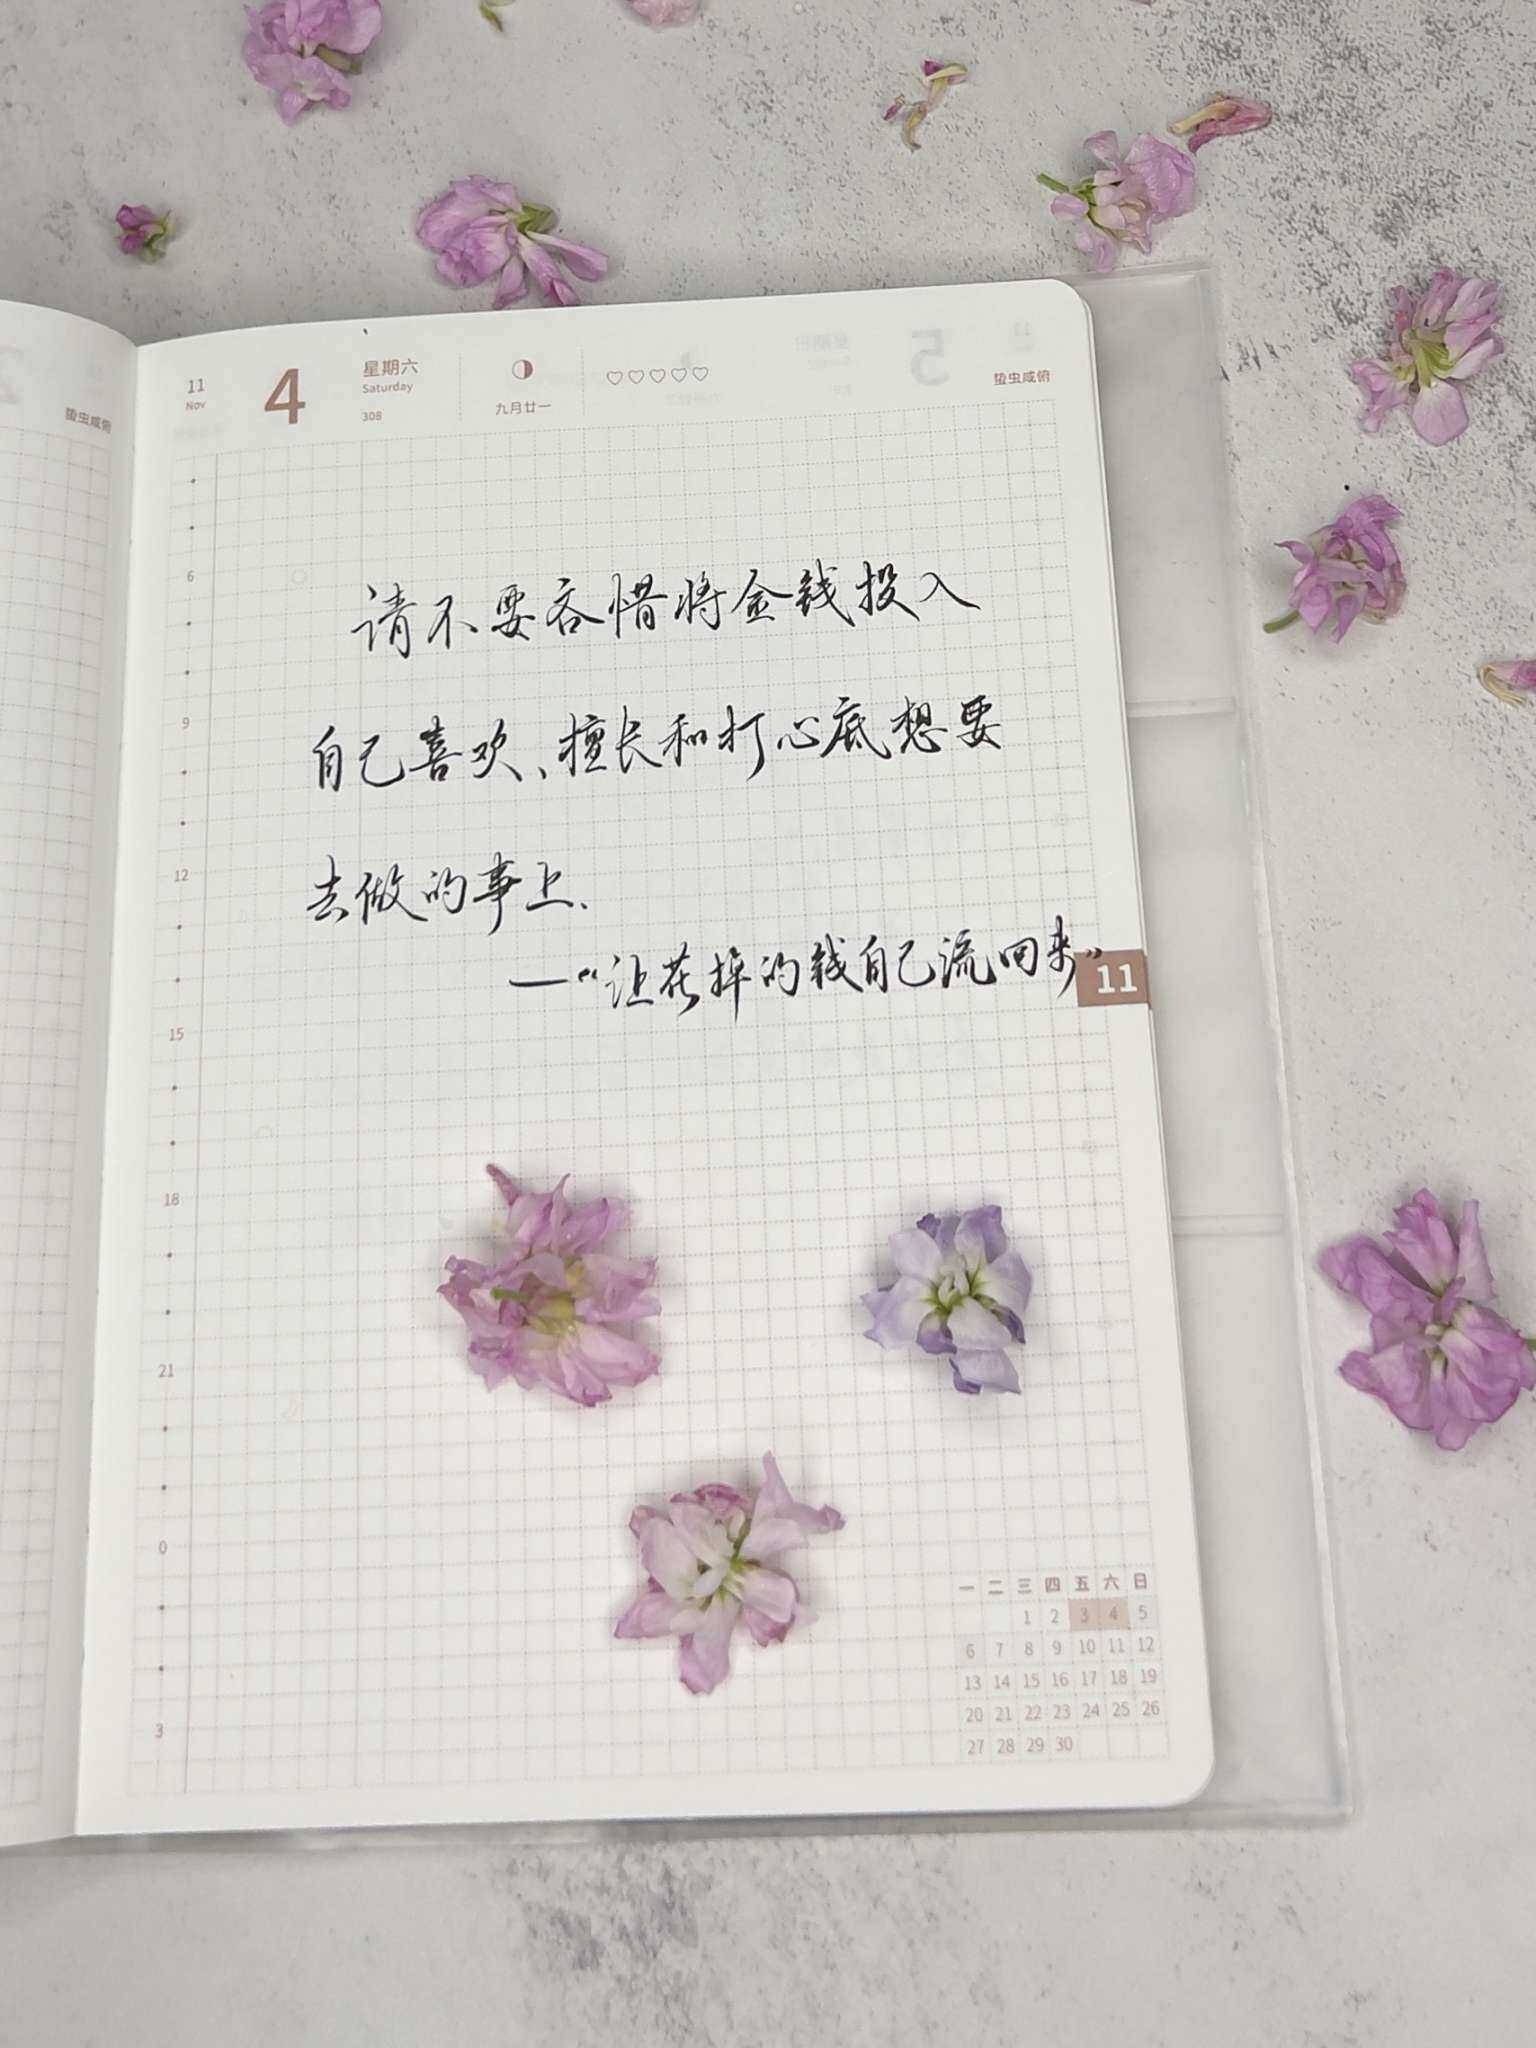 蛰虫咸俯
11
Nov
4
星期六
Saturday
308
九月廿一
蛰虫咸俯
6
请不要吝惜将金钱投入
9
自己喜欢、擅长和打心底想要
12
去做的事上、
—“让花掉的钱自己流回来”
11
15
18
21
0
3
一 二 三 四 五 六 日
1 2 3 4 5
6 7 8 9 10 11 12
13 14 15 16 17 18 19
20 21 22 23 24 25 26
27 28 29 30